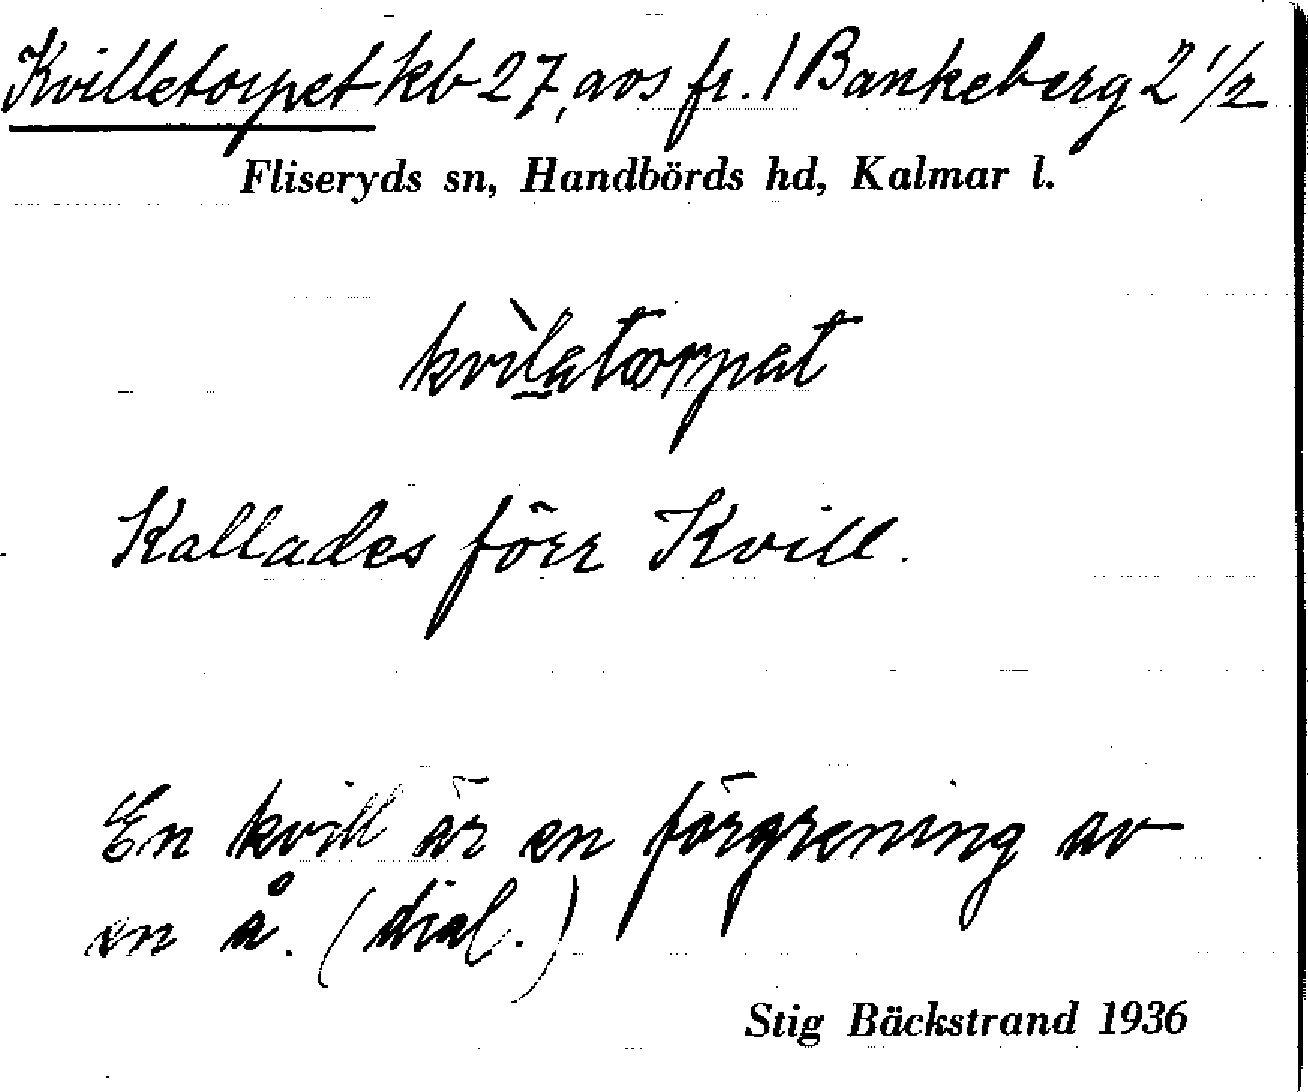 Kvilletorpet kb 27, avs fr. 1 Bankeberg 2 1/2
Fliseryds sn, Handbörds hd, Kalmar l.
kvìlatorpat
Kallades förr Kvill.
En kvill är en förgrening av
en å. (dial.)
Stig Bäckstrand 1936